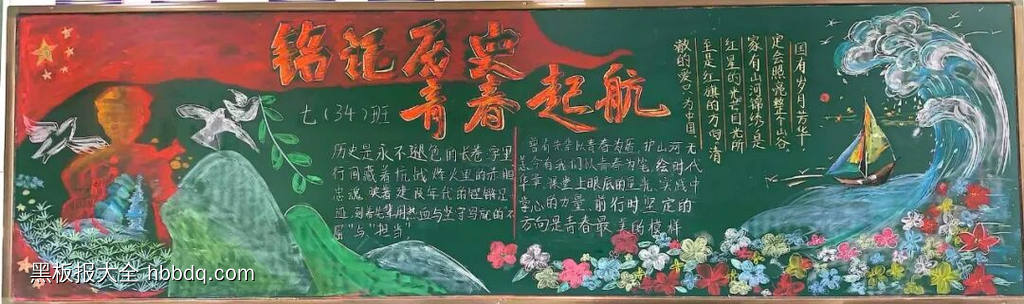 铭记历史
青春起航
七(34)班
历史是永不褪色的长卷,字里
行间藏着抗战烽火里的赤胆
忠魂,映着建设年代的铿锵足
迹,到先辈用热血与坚守写就的不
屈"与"担当"
以青春为盾,护山河无
恙,今有我们以青春为笔,绘时代
华章。课堂上眼底的星光,实践中
掌心的力量,前行时坚定的
方向是青春最美的模样
国有岁月芳华,
定会照亮整个山谷。
家有山河锦绣,是
红星的光芒目光所
至是红旗的方向,清
澈的爱只为中国
黑板报大全 hbbdq.com